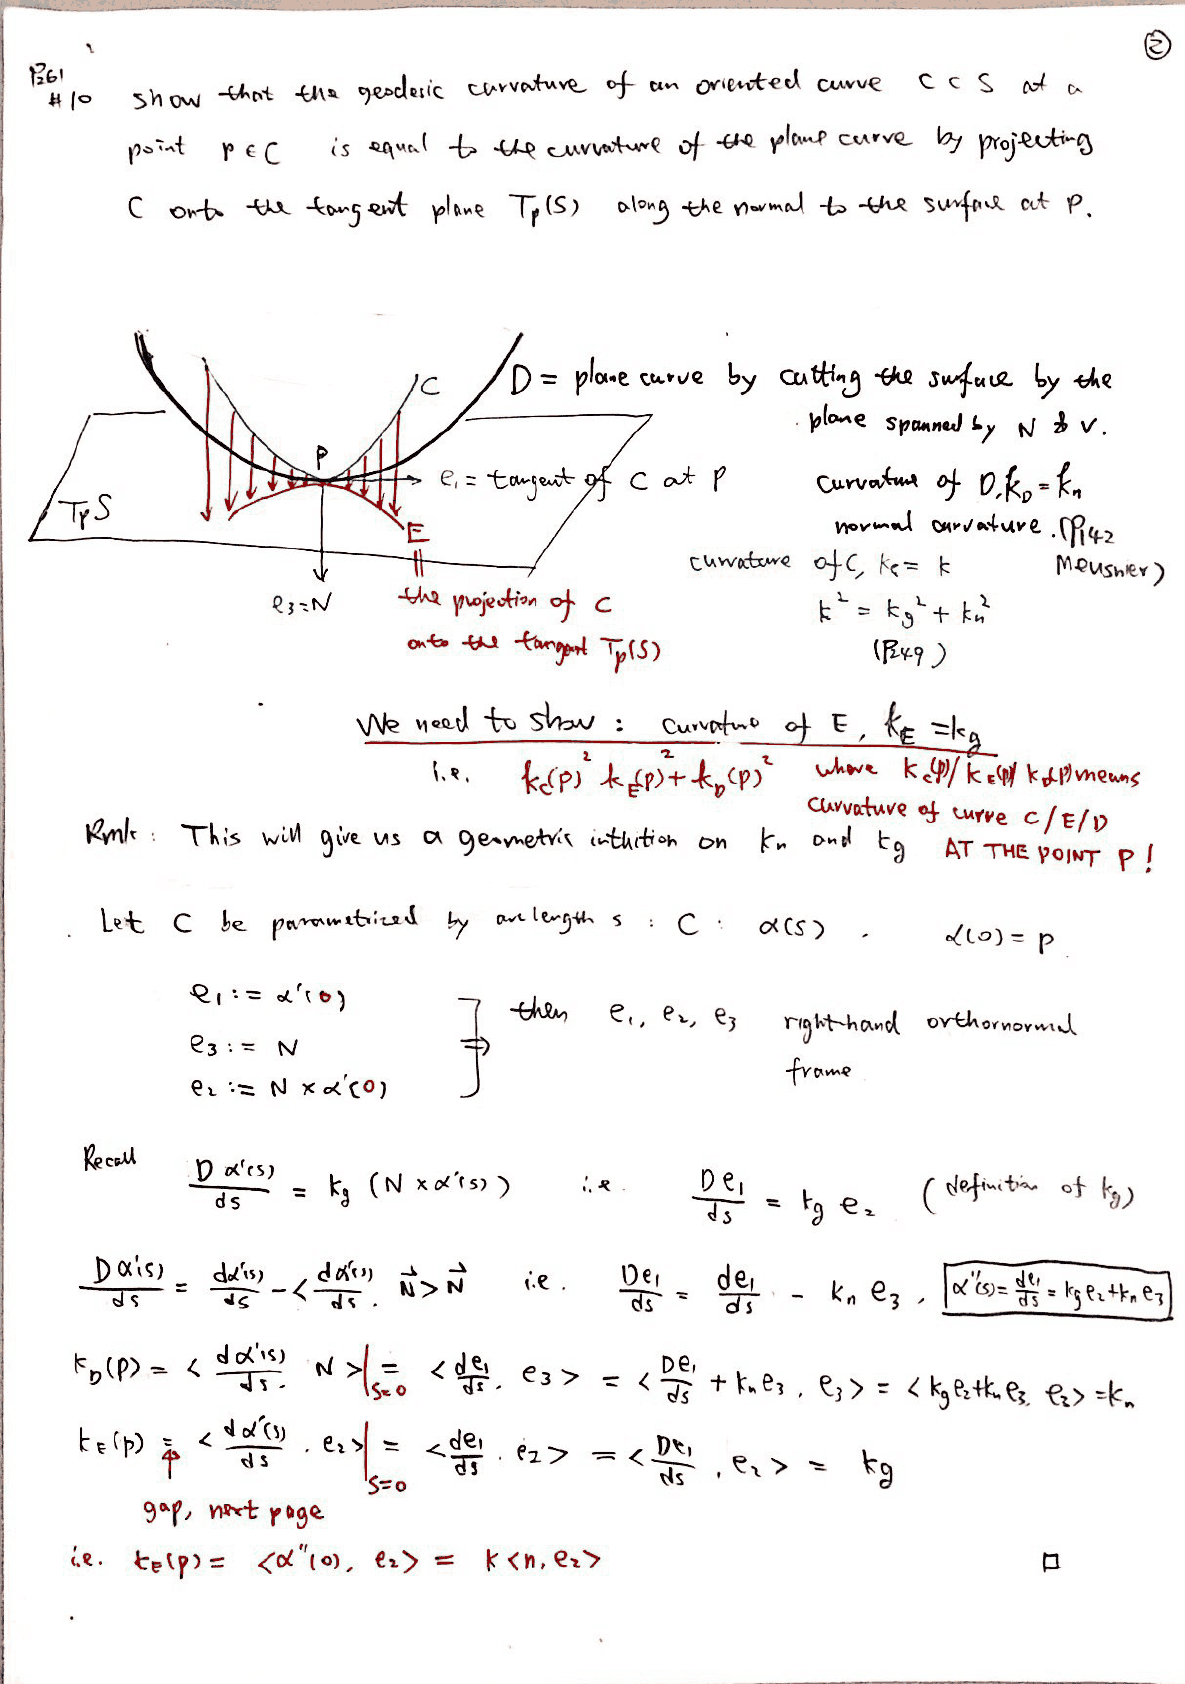 ②
P261
#10 show that the geodesic curvature of an oriented curve C ⊂ S at a
point p ∈ C is equal to the curvature of the plane curve by projecting
C onto the tangent plane Tp(S) along the normal to the surface at p.
C
D = plane curve by cutting the surface by the
plane spanned by N & v.
P
e1 = tangent of C at p
curvature of D, kD = kn
TpS
normal curvature. (P142
Meusnier)
E
||
curvature of C, kc = k
e3 = N
the projection of C
k² = kg² + kn²
onto the tangent Tp(S)
(P249)
We need to show : curvature of E, kE = kg
i.e. kC(p)² = kE(p)² + kD(p)² where kC(p)/kE(p)/kD(p) means
curvature of curve C/E/D
Rmk : This will give us a geometric inthition on kn and kg AT THE POINT P!
Let C be parametrized by arc length s : C : α(s) . α(0) = p
e1 := α'(0)
e3 := N
e2 := N × α'(0)
⇒ then e1, e2, e3 right-hand orthornormal
frame
Recall Dα'(s)/ds = kg (N × α'(s)) i.e. De1/ds = kg e2 (definition of kg)
Dα'(s)/ds = dα'(s)/ds - <dα'(s)/ds, N⃗>N⃗ i.e. De1/ds = de1/ds - kn e3 , α''(s) = de1/ds = kg e2 + kn e3
kD(p) = <dα'(s)/ds, N>|s=0 = <de1/ds, e3> = <De1/ds + kn e3, e3> = <kg e2 + kn e3, e3> = kn
kE(p) = <dα'(s)/ds, e2>|s=0 = <de1/ds, e2> = <De1/ds, e2> = kg
gap, next page
i.e. kE(p) = <α''(0), e2> = k<n, e2> □